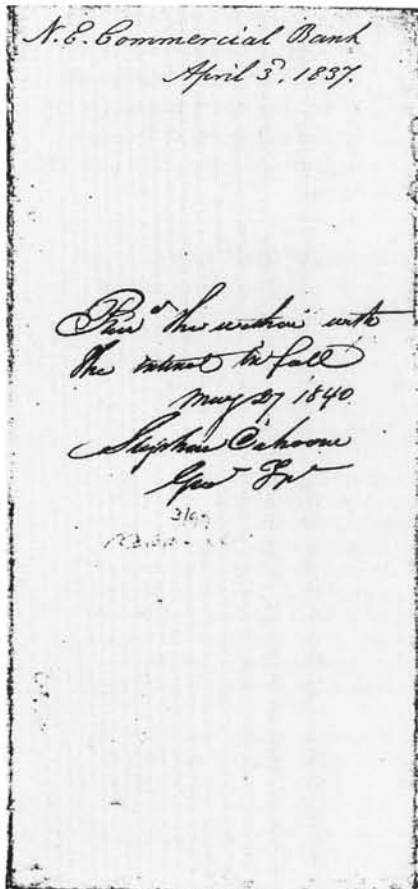 N. E. Commercial Bank
April 3d, 1837.
the within with
the interest in full
May 27 1840
Stephen Cahoone
Genl Tr
3197